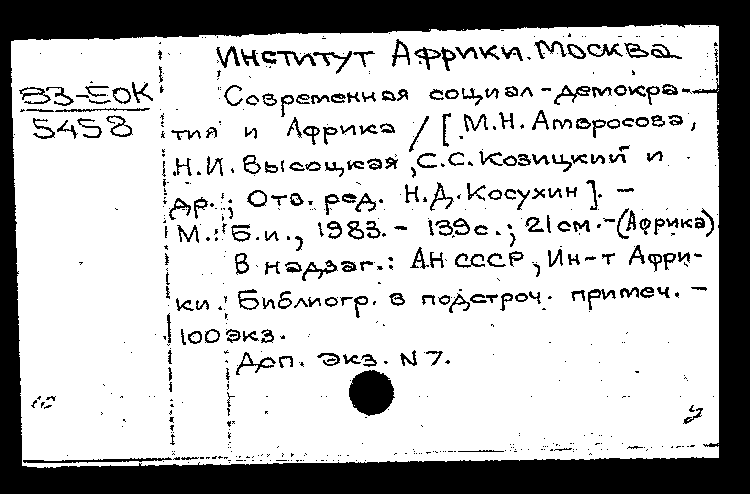 Институт Африки. Москва
83-ЕОК
5458
Современная социал-демокра-
тия и Африка / [М.Н. Амвросова,
Н.И. Высоцкая, С.С. Козицкий и
др.; Отв. ред. Н.Д. Косухин]. -
М.: Б.и., 1983. - 139с.; 21см. - (Африка).
В надзаг.: АН СССР, Ин-т Афри-
ки. Библиогр. в подстроч. примеч. -
100экз.
Доп. экз. N 7.